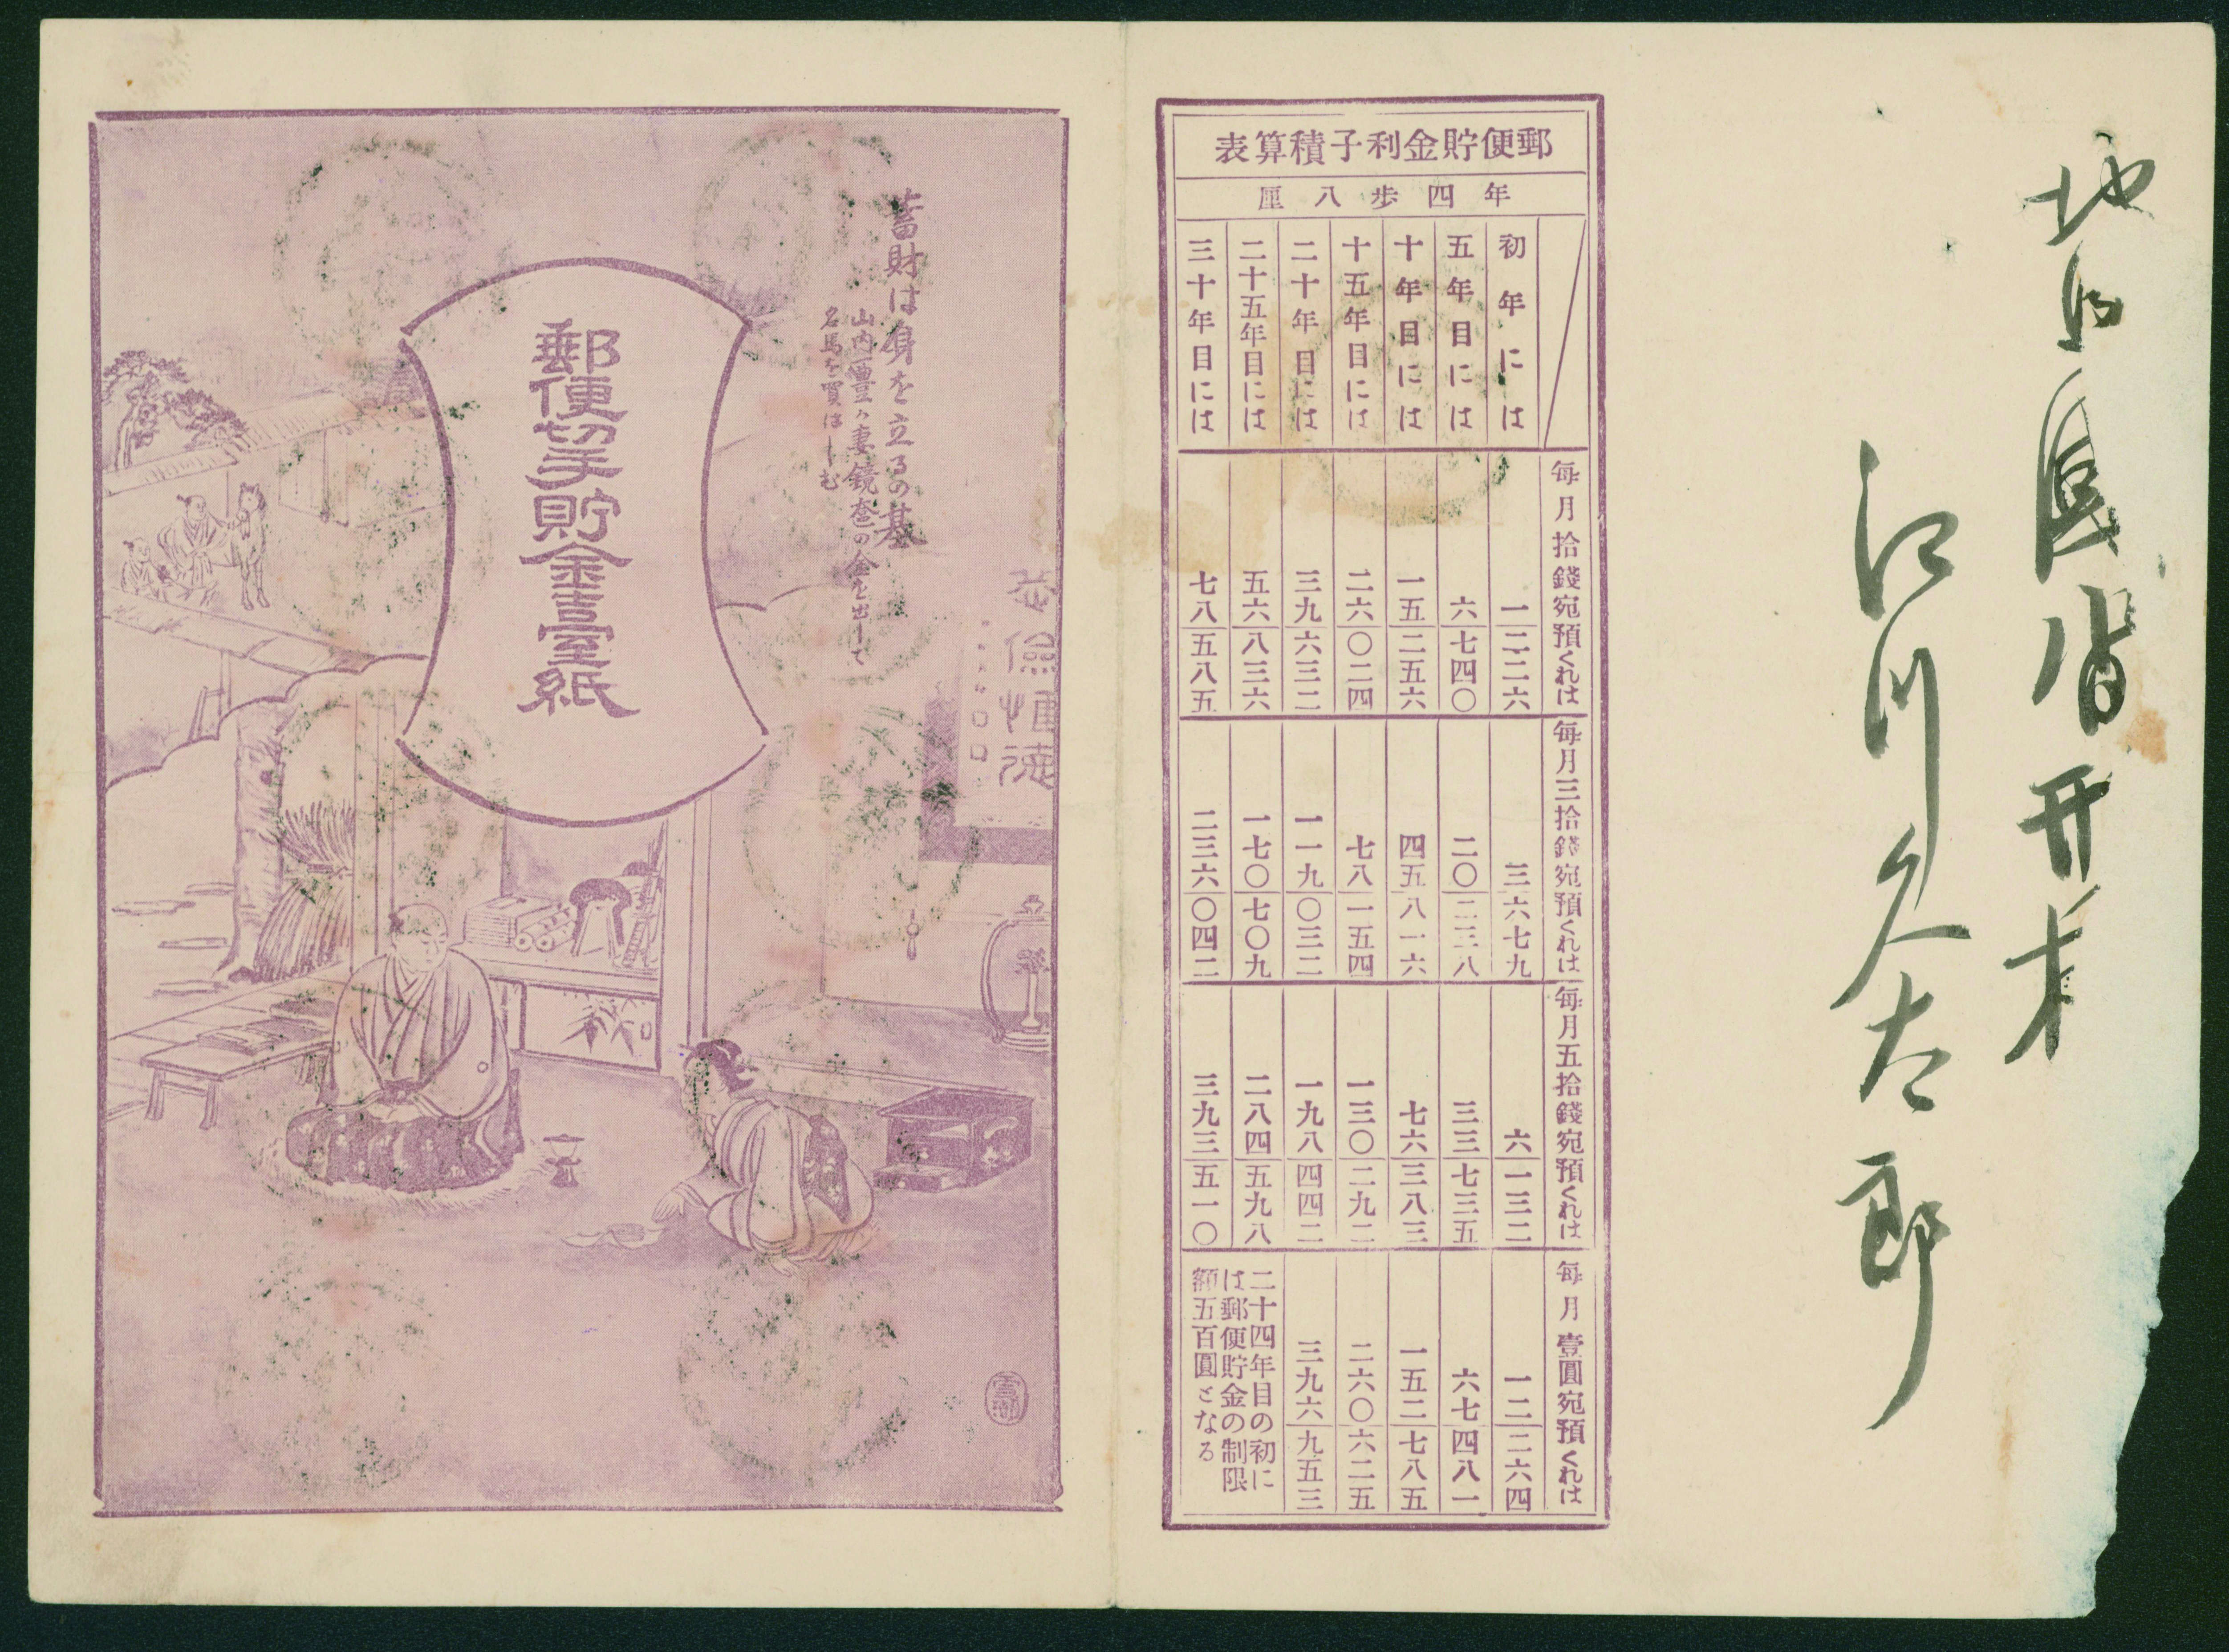 江川久太郎
郵便貯金利子積算表
年四歩八厘
初年には
五年目には
十年目には
十五年目には
二十年目には
二十五年目には
三十年目には
每月拾錢宛預くれは
一二二六
六七四〇
一五二五六
二六〇二四
三九六三二
五六八三六
七八五八五
每月三拾錢宛預くれは
三六七九
二〇二三八
四五八一六
七八一五四
一一九〇三二
一七〇七〇九
二三六〇四二
每月五拾錢宛預くれは
六一三二
三三七三五
七六三八三
一三〇二九二
一九八四四二
二八四五九八
三九三五一〇
每月壹圓宛預くれは
一二二六四
六七四八一
一五二七八五
二六〇六二五
三九六九五三
二十四年目の初に
は郵便貯金の制限
額五百圓となる
蓄財は身を立るの基
山内豊ヶ妻鏡奩の金を出して
名馬を買はしむ
郵便切手貯金臺紙